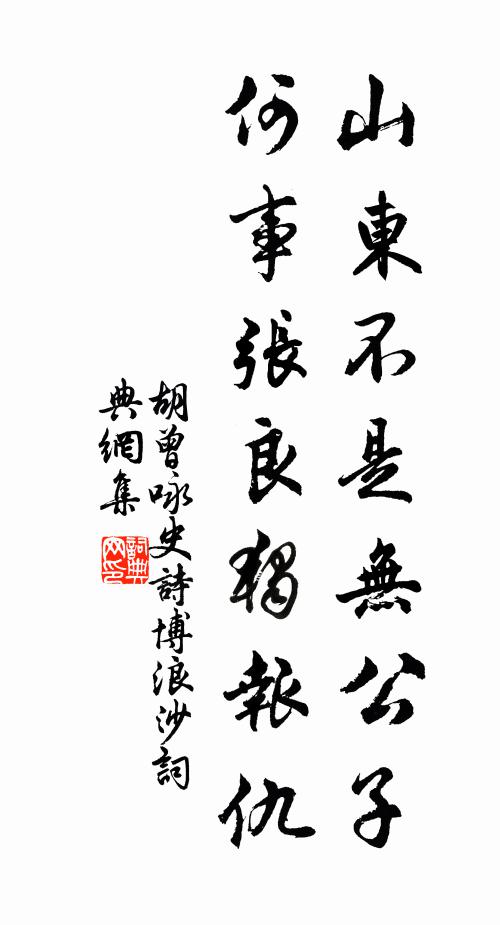 山東不是無公子
何事張良獨報仇
胡曾咏史詩博浪沙詞
典網集
詞典
网印